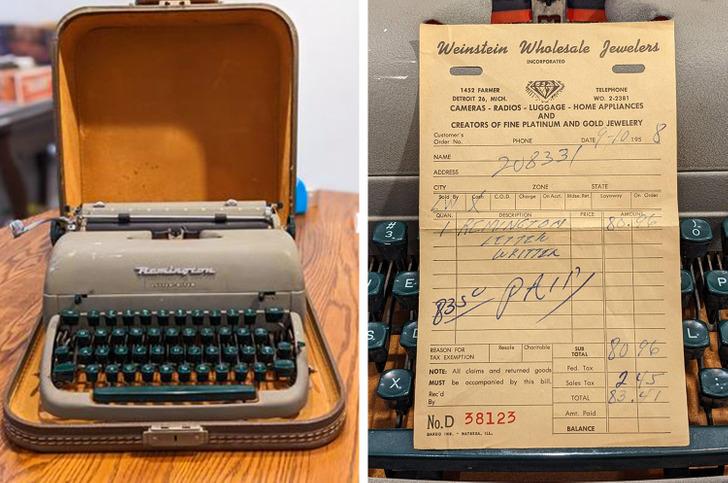 Remington
Weinstein Wholesale Jewelers
INCORPORATED
1452 FARMER
DETROIT 26, MICH.
TELEPHONE
WO. 2-2381
CAMERAS - RADIOS - LUGGAGE - HOME APPLIANCES
AND
CREATORS OF FINE PLATINUM AND GOLD JEWELERY
Customer's
Order No. PHONE DATE 9-10 195 8
NAME 208331
ADDRESS
CITY ZONE STATE
Sold By Cash C.O.D. Charge On Acct. Mdse. Ret. Layaway On Order
X
QUAN. DESCRIPTION PRICE AMOUNT
1 REMINGTON 80.96
LETTER
WRITTER
8350 PAID
REASON FOR
TAX EXEMPTION Resale Charitable SUB
TOTAL 80 96
NOTE: All claims and returned goods
MUST be accompanied by this bill.
Fed. Tax
Sales Tax 2 45
Rec'd
By
TOTAL 83.41
Amt. Paid
BALANCE
No. D 38123
#
3
E
S
X
)
0
P
L